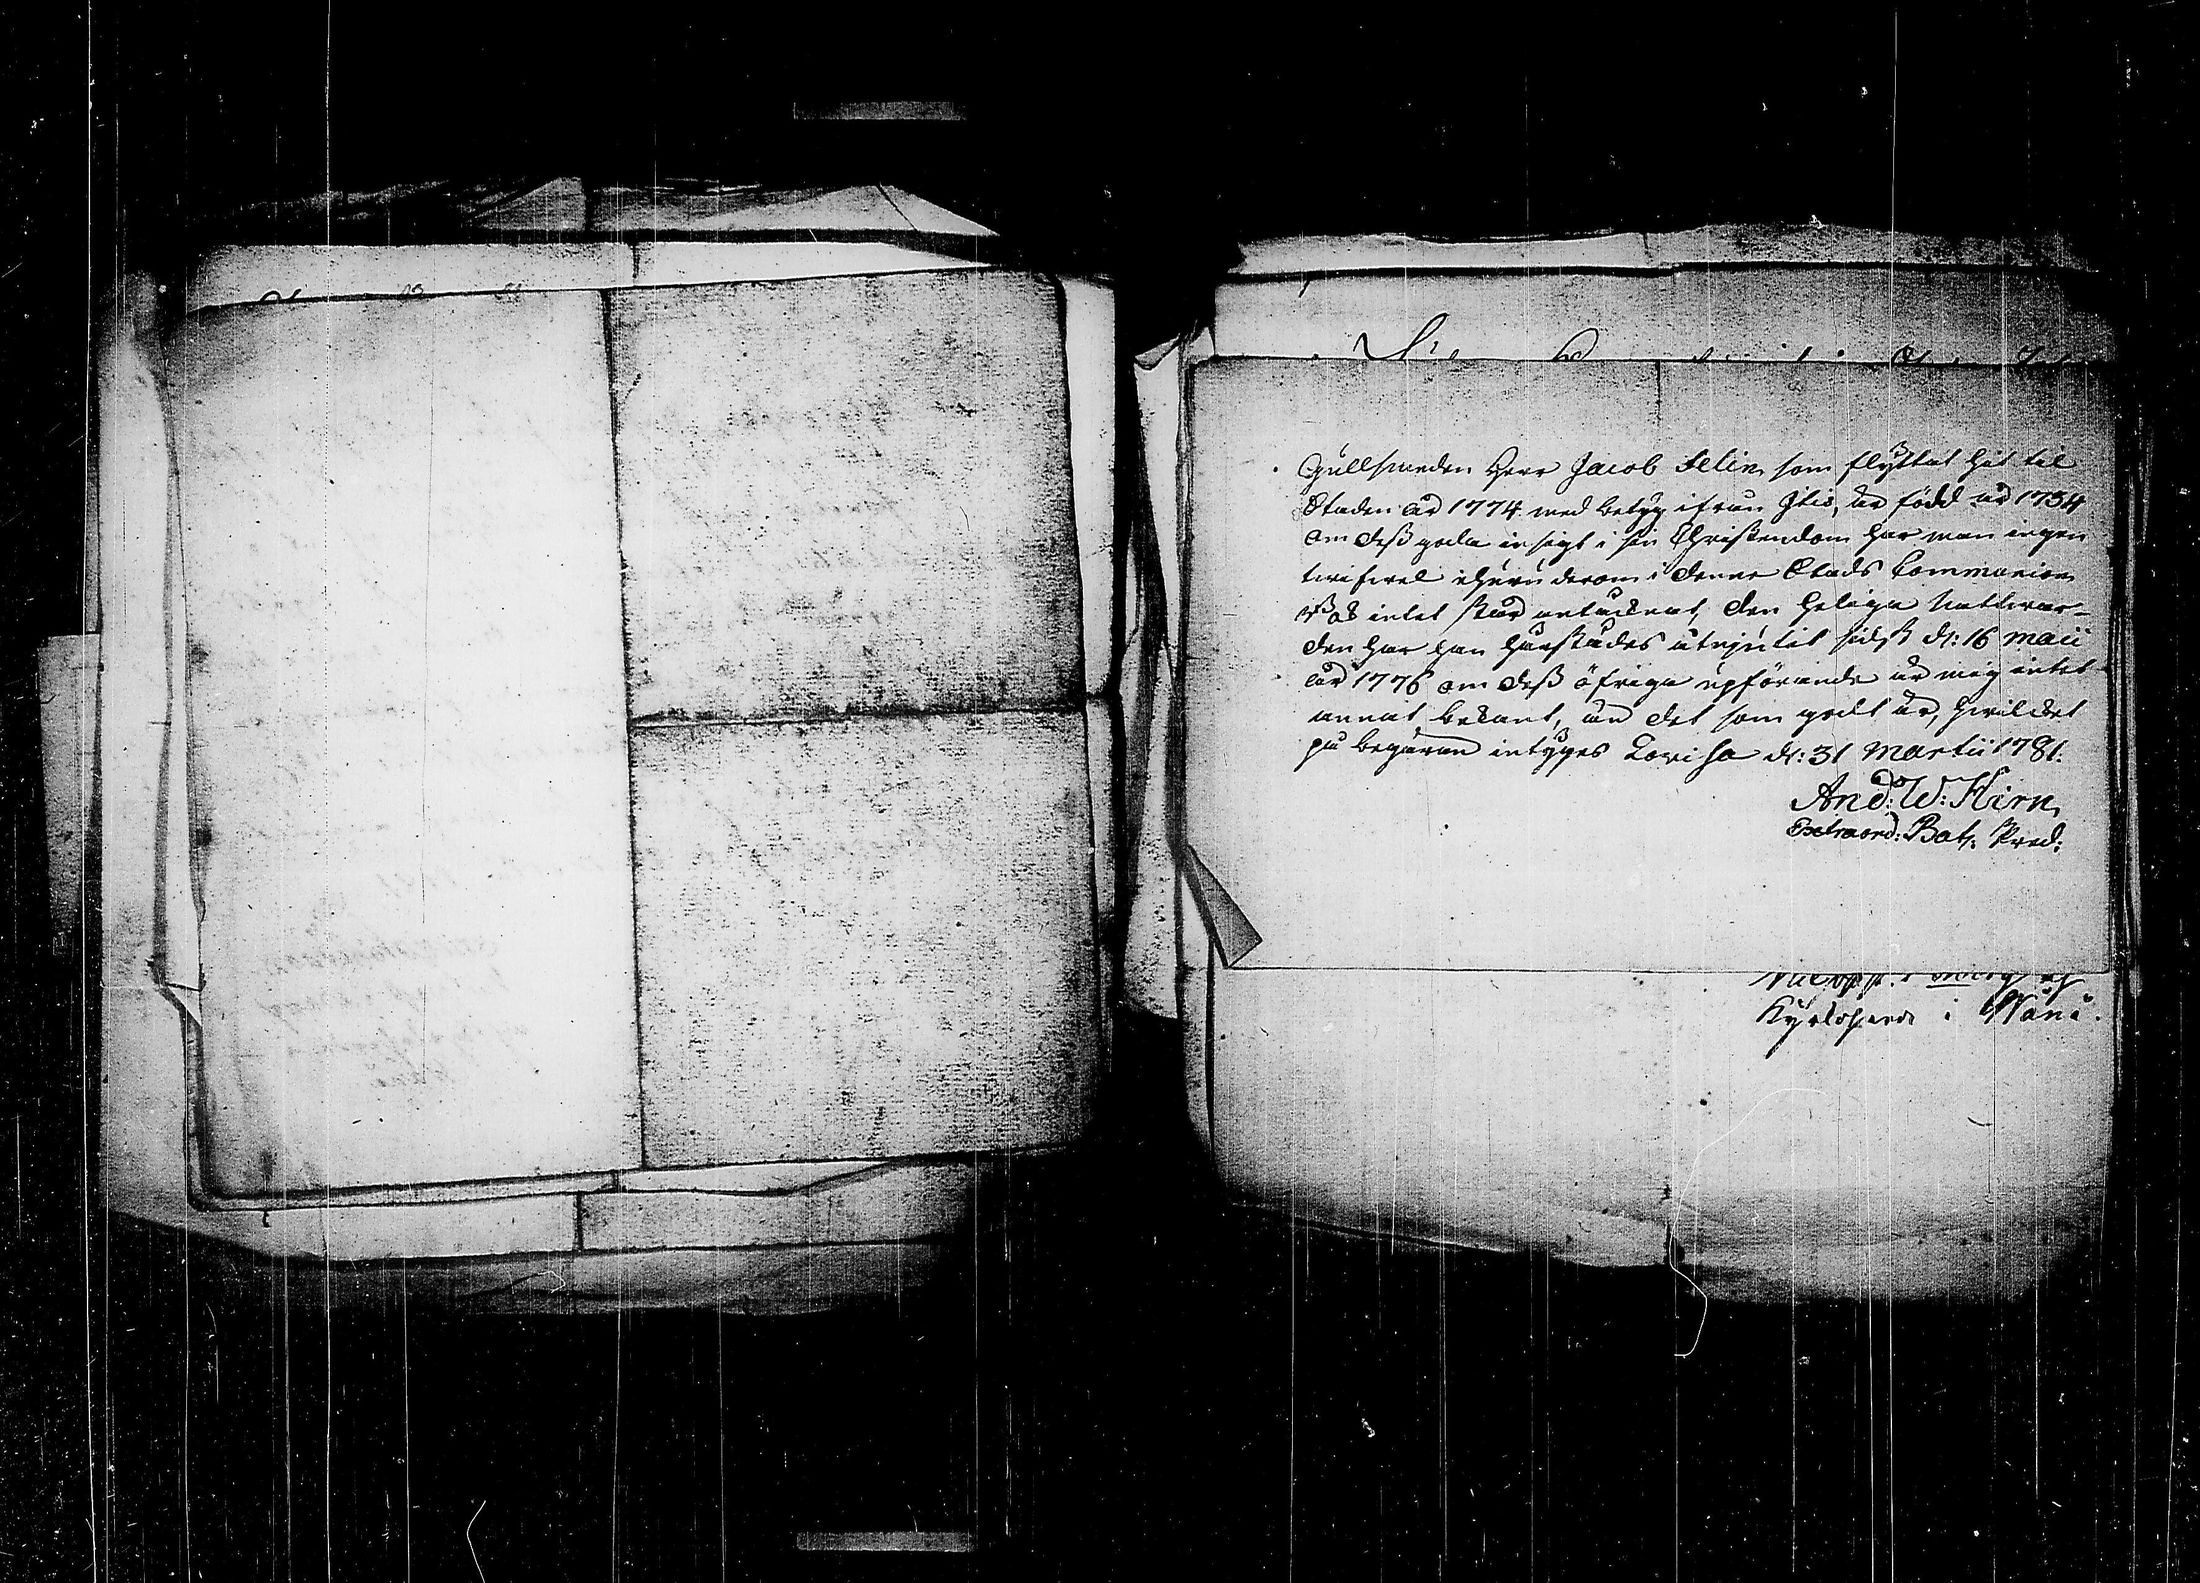 Gullsmeden Herr Jacob Felin, som flyttat hit til
Staden år 1774 med betyg ifrån Itis, är född år 1734
om dess goda insigt i sin Christendom har man ingen
twifwel ehuru derom i denne Stads Communion
Bok intet står antecknat, den heliga Nattwar-
den har han härstädes utnjutit sidst d: 16 Maii
år 1776 om dess öfriga upförande är mig intet
annat bekant, än det som godt är, hwilcket
på begäran intyges Lovisa d: 31 Martii 1781.
And: W: Hirn,
Extraord: Bat: Pred:
Kyrkoherde i Nänä.